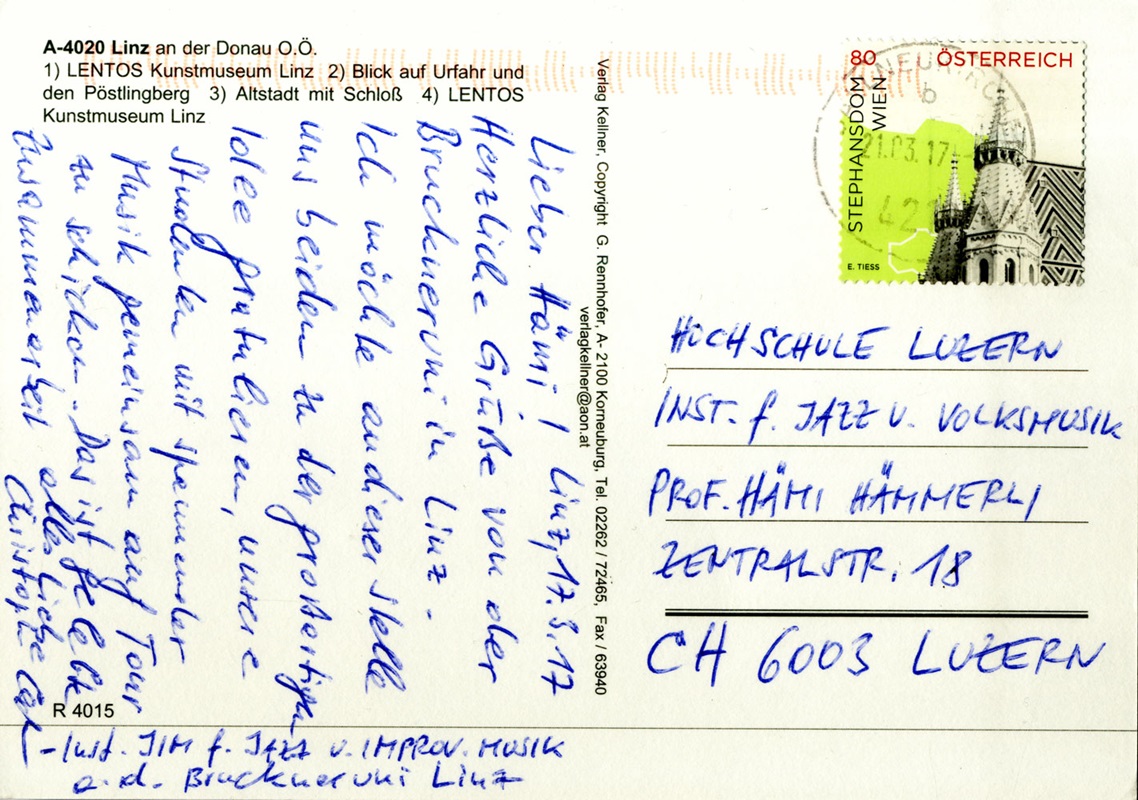 A-4020 Linz an der Donau O.Ö.
1) LENTOS Kunstmuseum Linz 2) Blick auf Urfahr und
den Pöstlingberg 3) Altstadt mit Schloß 4) LENTOS
Kunstmuseum Linz
Lieber Hämi! Linz, 17.3.17
Herzliche Grüße von der
Bruckneruni in Linz -
Ich möchte an dieser Stelle
uns beiden zu der großartigen
Idee gratulieren, unsere
Studenten mit spannender
Musik gemeinsam auf Tour
zu schicken - Das ist gelebte
Zusammenarbeit alles Liebe
Christoph
- Inst. JIM f. JAZZ U. IMPROV. MUSIK
a. d. Bruckneruni Linz
R 4015
Verlag Kellner, Copyright G. Rennhofer, A- 2100 Korneuburg, Tel. 02262 / 72465, Fax / 63940
verlagkellner@aon.at
80 ÖSTERREICH
STEPHANSDOM
WIEN
E. TIESS
b
21.03.17
HOCHSCHULE LUZERN
INST. f. JAZZ U. VOLKSMUSIK
PROF. HÄMI HÄMMERLI
ZENTRALSTR. 18
CH 6003 LUZERN